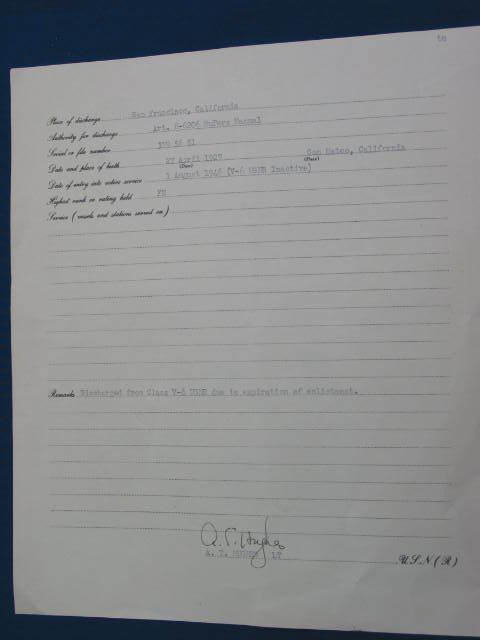 Place of discharge San Francisco, California
Authority for discharge Art. 6-6206 BuPers Manual
Serial or file number
Date and place of birth 27 April 1927 San Mateo, California
(Date) (Place)
Date of entry into active service 1 August 1946 (V-6 USNR Inactive)
Highest rank or rating held FN
Service (vessels and stations served on)
Remarks Discharged from Class V-6 USNR due to expiration of enlistment.
A. T. LT
U.S.N.(R)